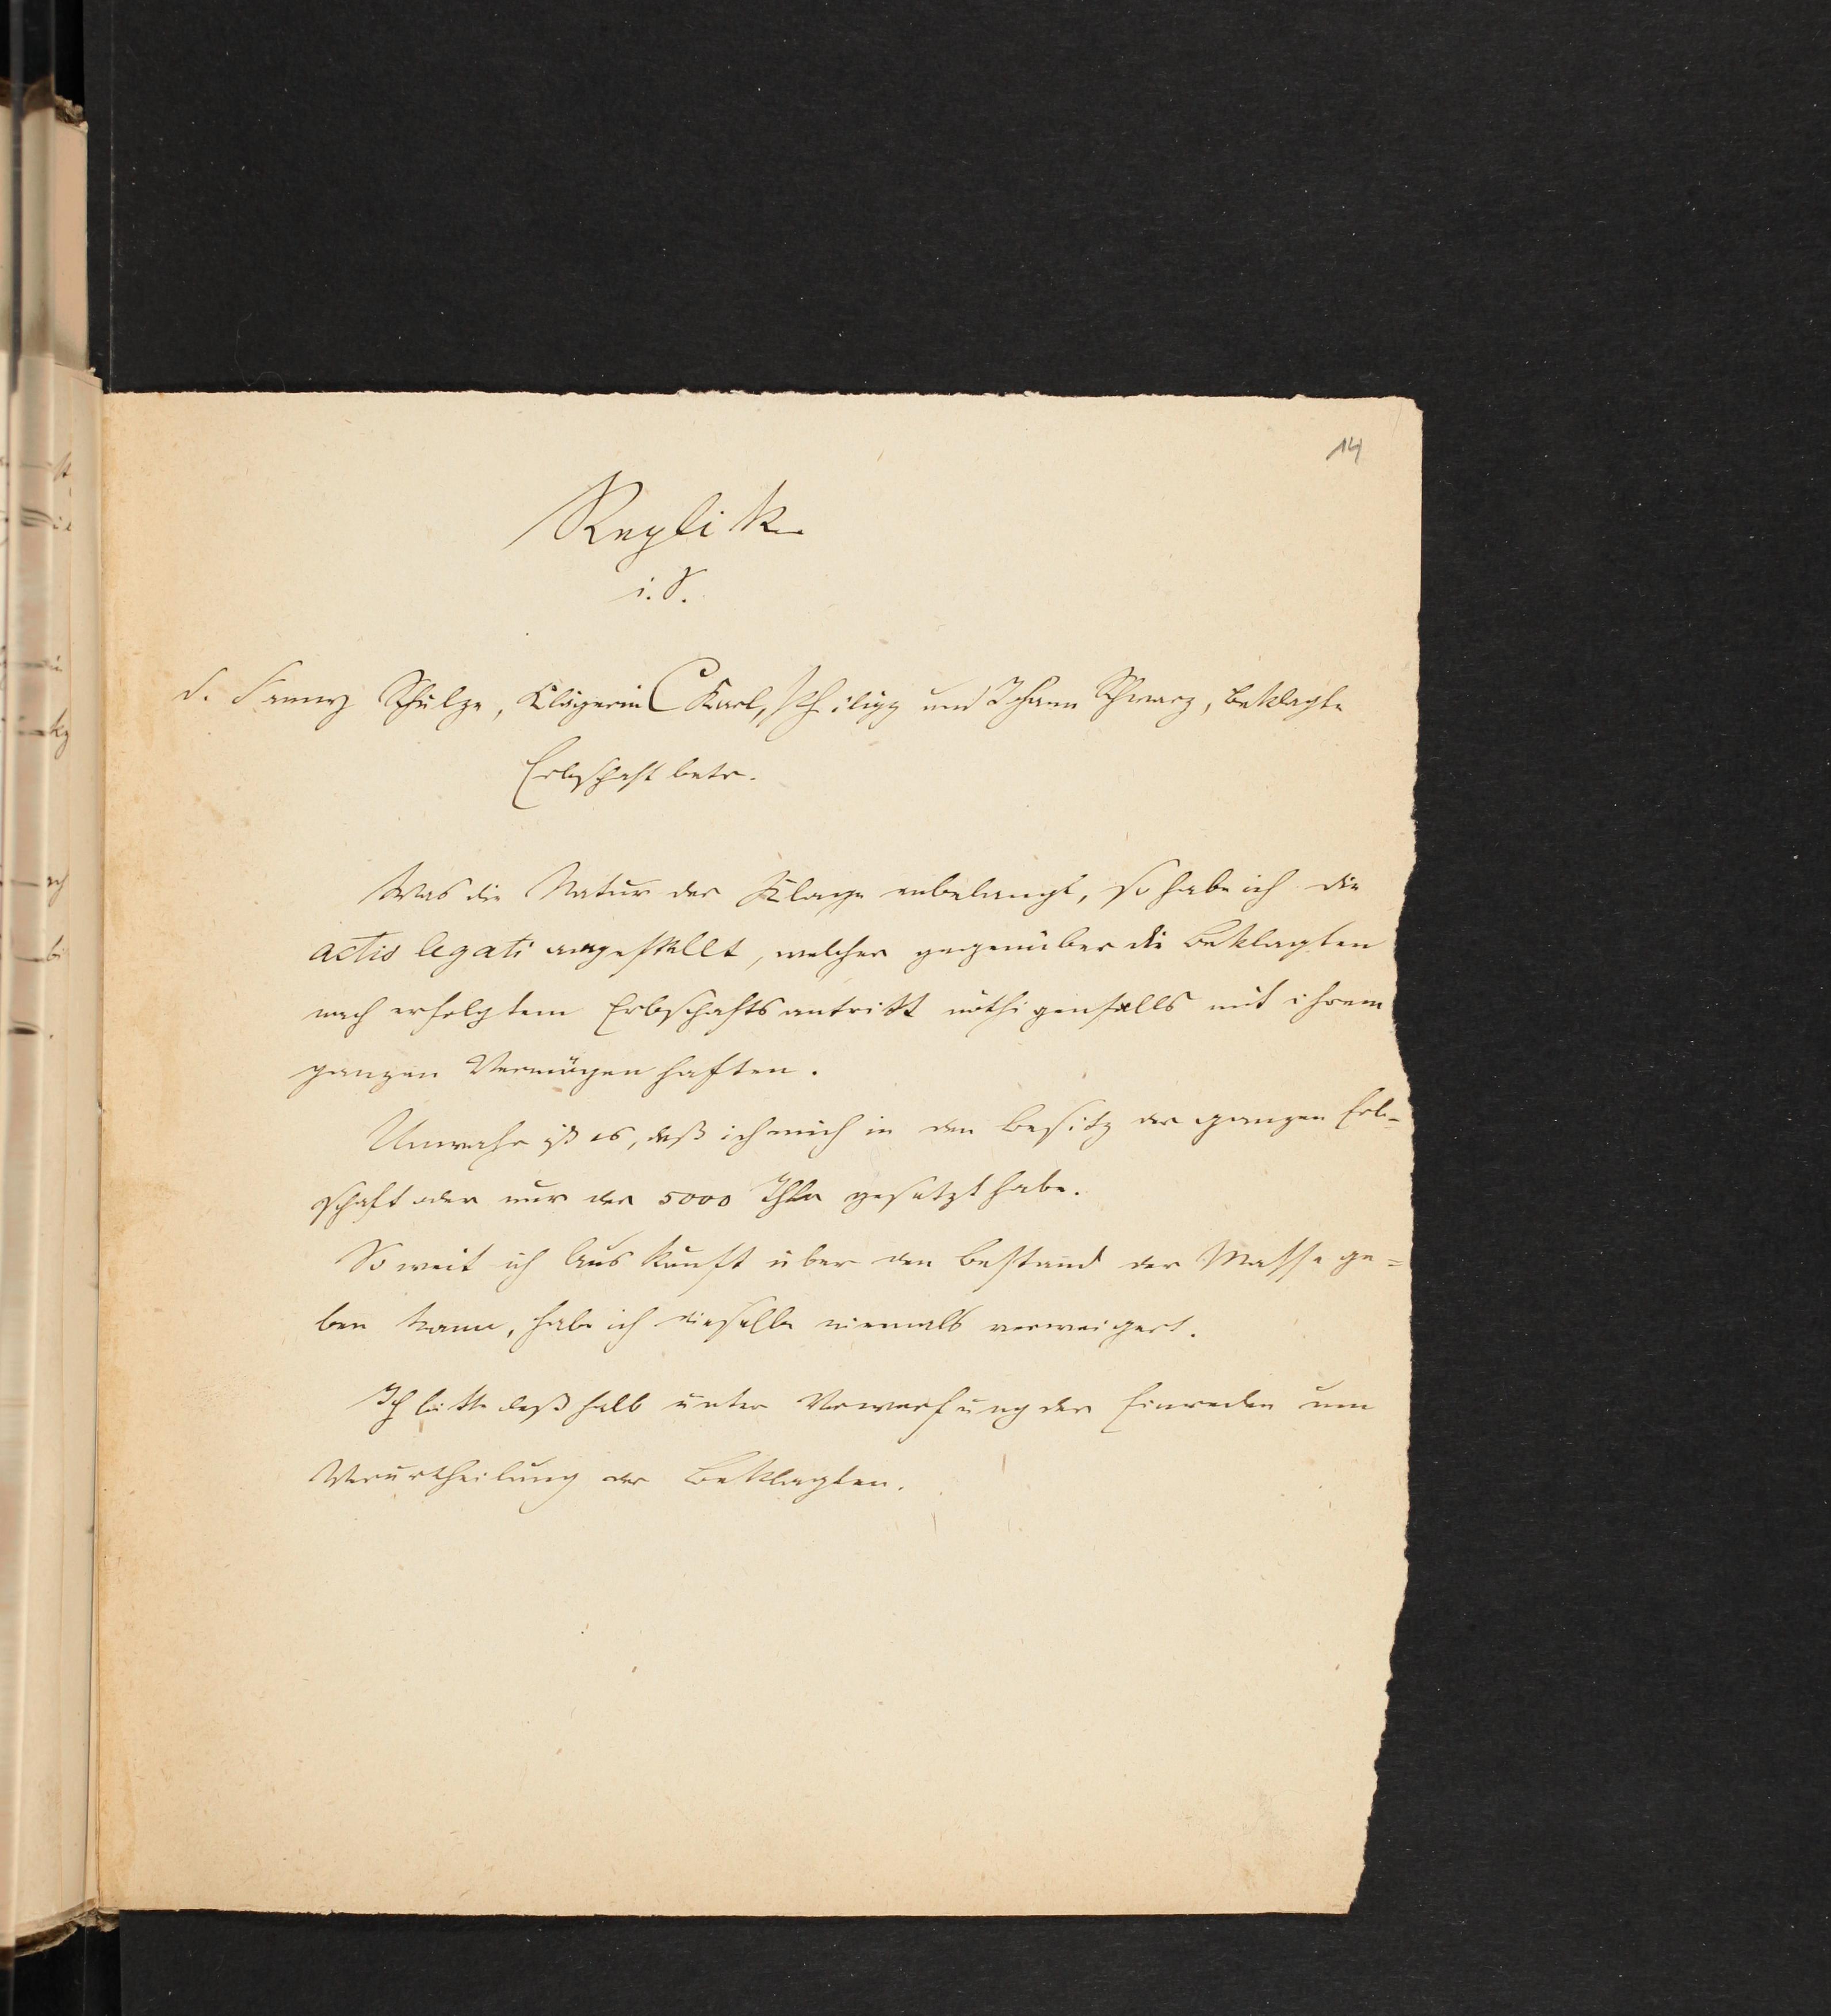 14
Replik
i. S.
d. Fanny Schulze, Klägerin C Karl, Philipp und Johann Schwarz, Beklagte
Erbschaft betr.
Was die Natur der Klage anbelangt, so habe ich die
actio legati angestellt, welcher gegenüber die Beklagten
nach erfolgtem Erbschaftsantritt nöthigenfalls mit ihrem
ganzen Vermögen haften.
Unwahr ist es, daß ich mich in den Besitz der ganzen Erb-
schaft oder nur der 5000 Thlr gesetzt habe.
So weit ich Auskunft über den Bestand der Masse ge=
ben kann, habe ich dieselbe niemals verweigert.
Ich bitte deßhalb unter Verwerfung der Einreden um
Verurtheilung der Beklagten.